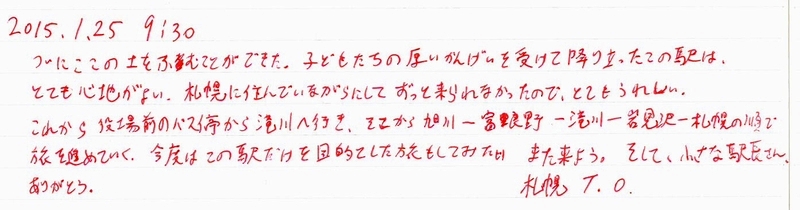 2015.1.25 9:30
ついにここの土をふむことができた。子どもたちの厚いかんげいを受けて降り立ったこの駅は、
とても心地がよい。札幌に住んでいながらにしてずっと来られなかったので、とてもうれしい。
これから役場前のバス停から滝川へ行き、そこから旭川ー富良野ー滝川ー岩見沢ー札幌の順で
旅を進めていく。今度はこの駅だけを目的とした旅もしてみたい また来よう。そして、小さな駅長さん、
ありがとう。 札幌 T.O.